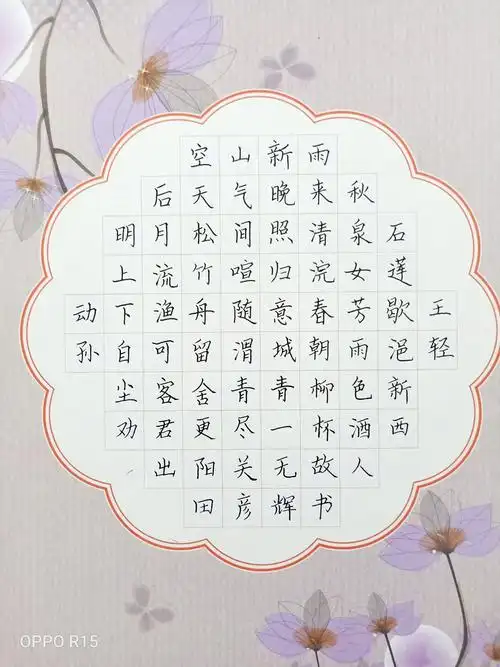 空山新雨
后天气晚来秋
明月松间照清泉石
上流竹喧归浣女莲
动下渔舟随意春芳歇王
孙自可留渭城朝雨浥轻
尘客舍青青柳色新
劝君更尽一杯酒西
出阳关无故人
田彦辉书
OPPO R15